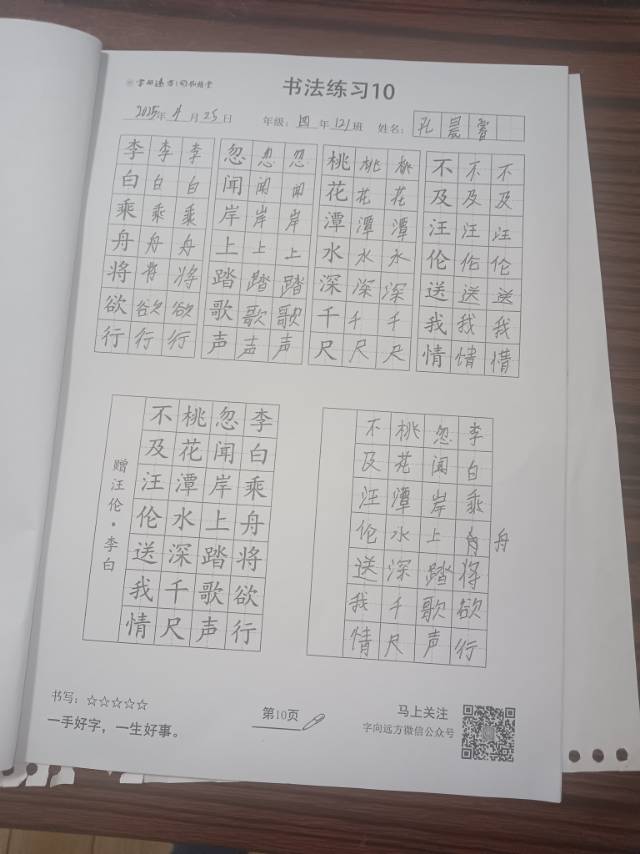 书法练习10
2025年4月25日 年级：四年12班 姓名：孔晨
李李李 忽忽忽 桃桃桃 不不不
白白白 闻闻闻 花花花 及及及
乘乘乘 岸岸岸 潭潭潭 汪汪汪
舟舟舟 上上上 水水水 伦伦伦
将将将 踏踏踏 深深深 送送送
欲欲欲 歌歌歌 千千千 我我我
行行行 声声声 尺尺尺 情情情
李白乘舟将欲行
忽闻岸上踏歌声
桃花潭水深千尺
不及汪伦送我情
赠汪伦·李白
李白乘舟将欲行
舟
忽闻岸上踏歌声
桃花潭水深千尺
不及汪伦送我情
书写：☆☆☆☆☆
一手好字，一生好事。
第10页
马上关注
字向远方微信公众号